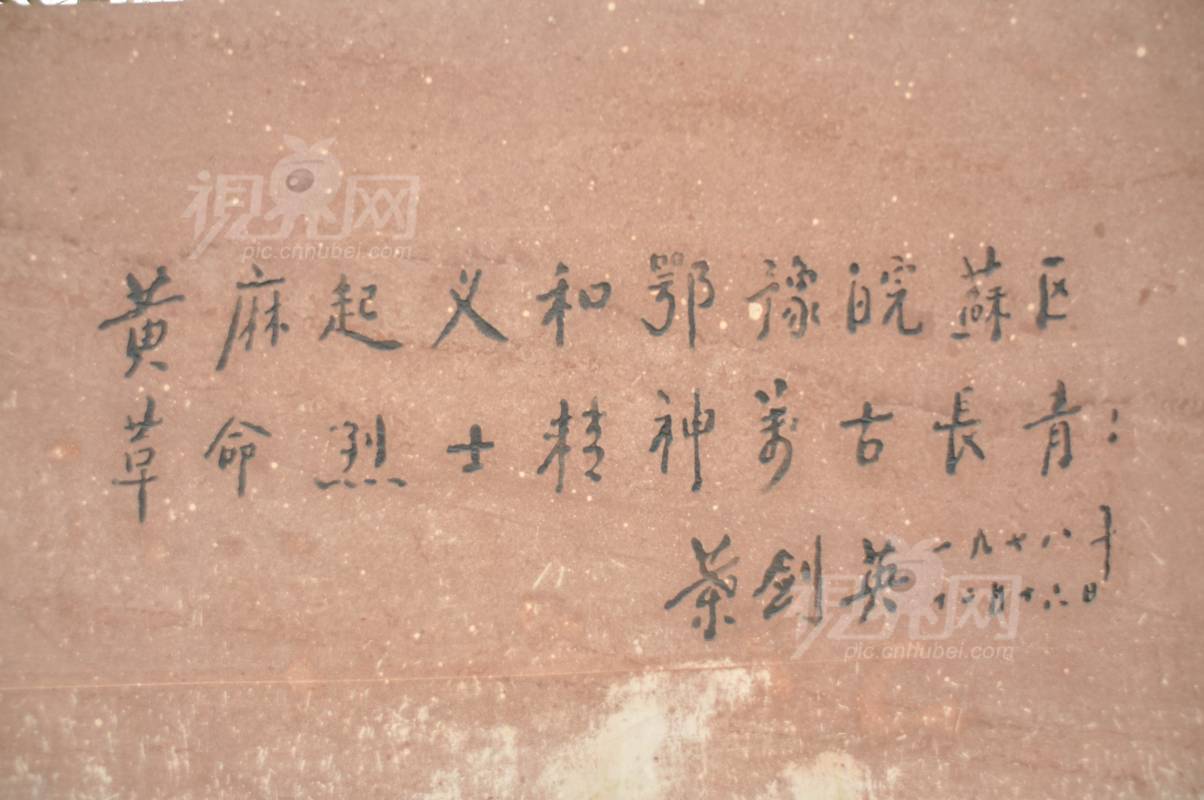 視界网
pic.cnhubei.com
黄麻起义和鄂豫皖蘇区
革命烈士精神萬古長青!
葉剑英
一九七八年
十二月十六日
視界网
pic.cnhubei.com